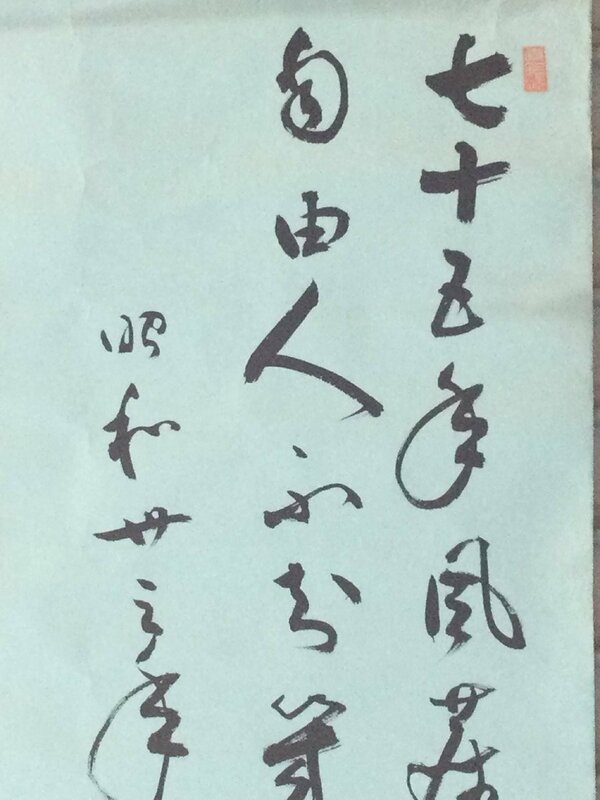 七十五年風
自由人不知
昭和廿三年